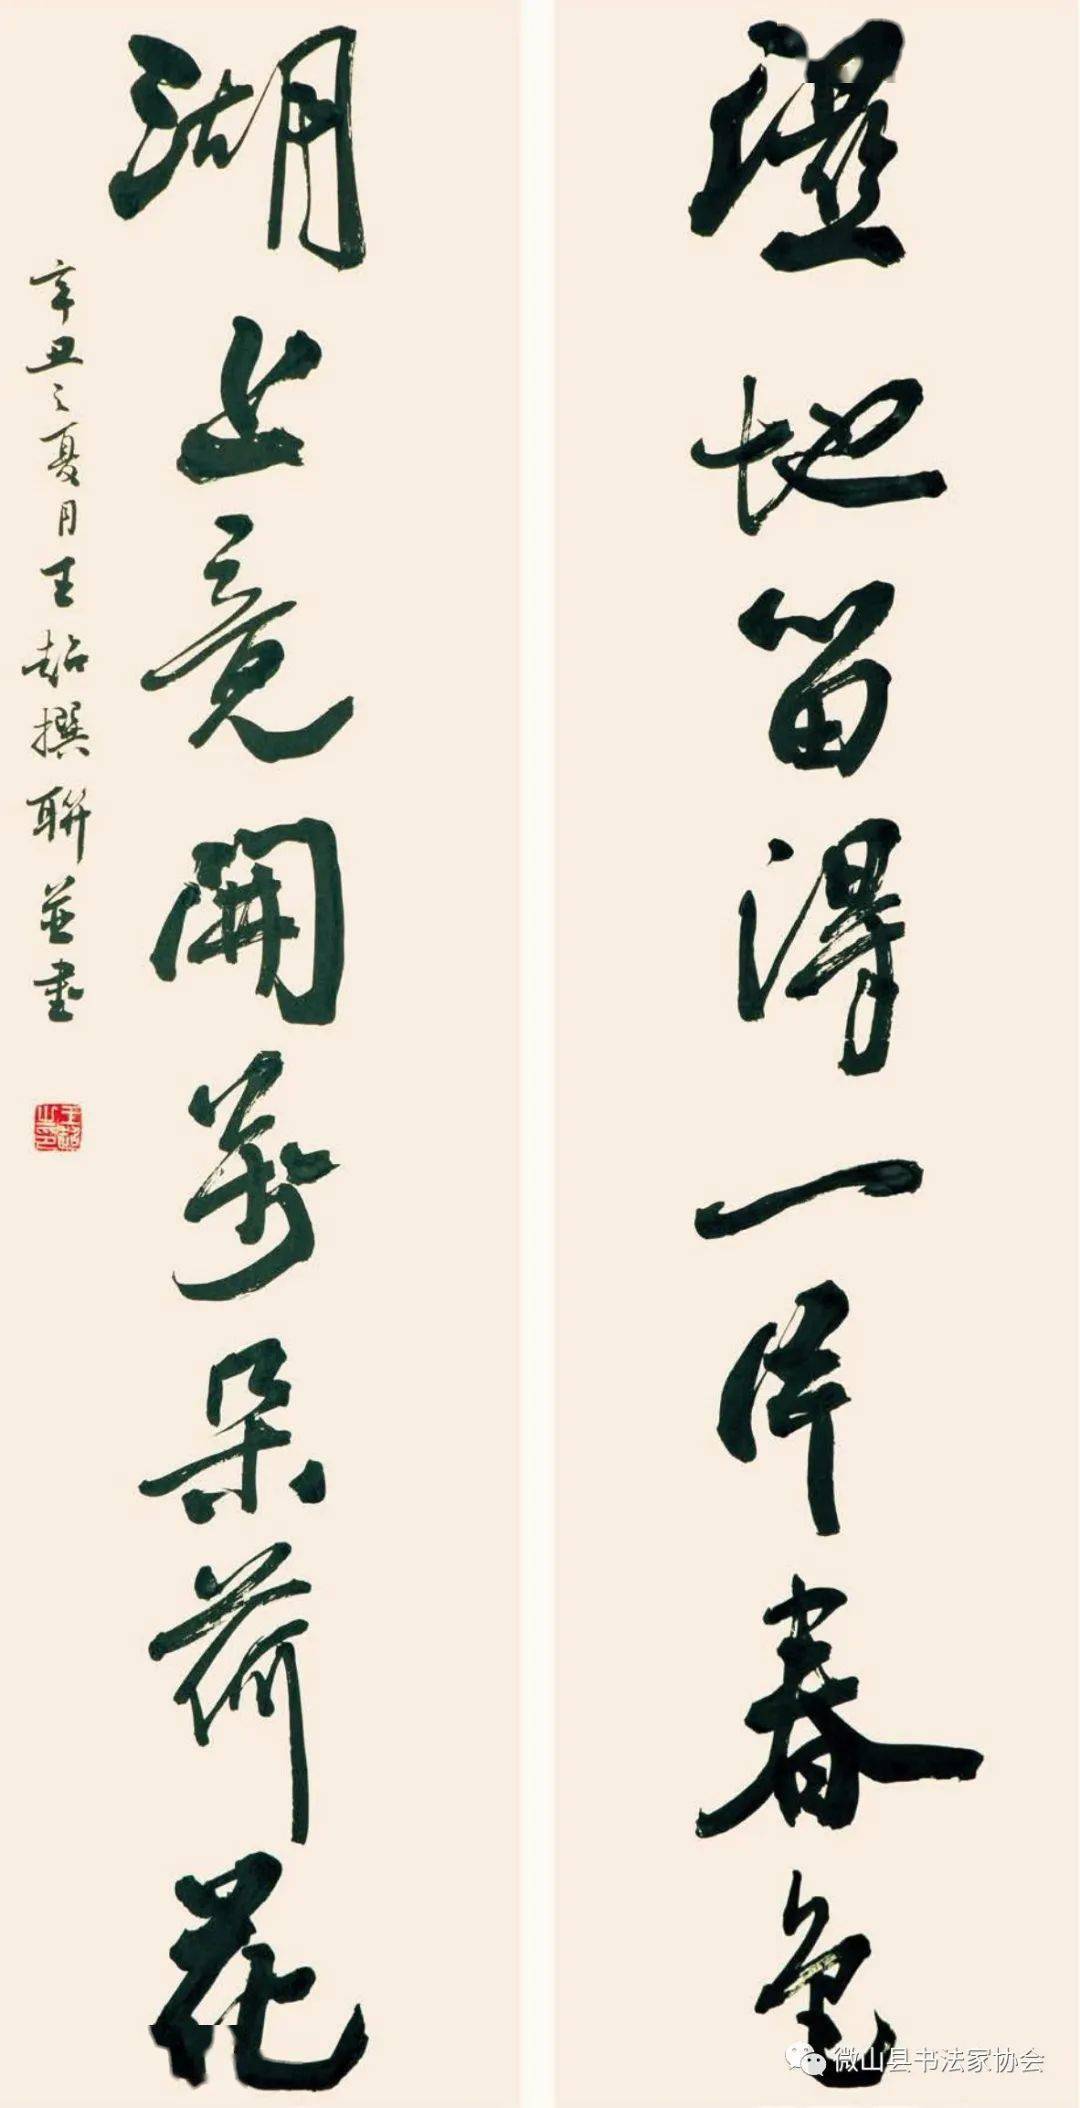 濕地留得一片春色
湖上竟開萬朵荷花
辛丑之夏月王超撰聯並書
微山县书法家协会